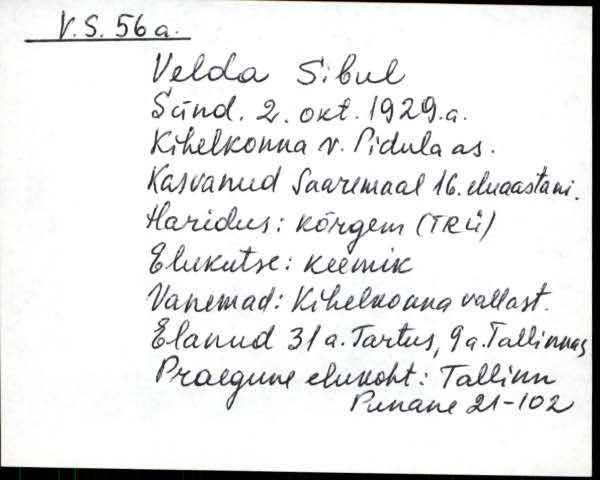 V.S. 56a.
Velda Sibul
Sünd. 2. okt. 1929.a.
Kihelkonna v. Pidula as.
Kasvanud Saaremaal 16. eluaastani.
Haridus: kõrgem (TRÜ)
Elukutse: keemik
Vanemad: Kihelkonna vallast.
Elanud 31 a. Tartus, 9 a. Tallinnas
Praegune elukoht: Tallinn
Punane 21-102